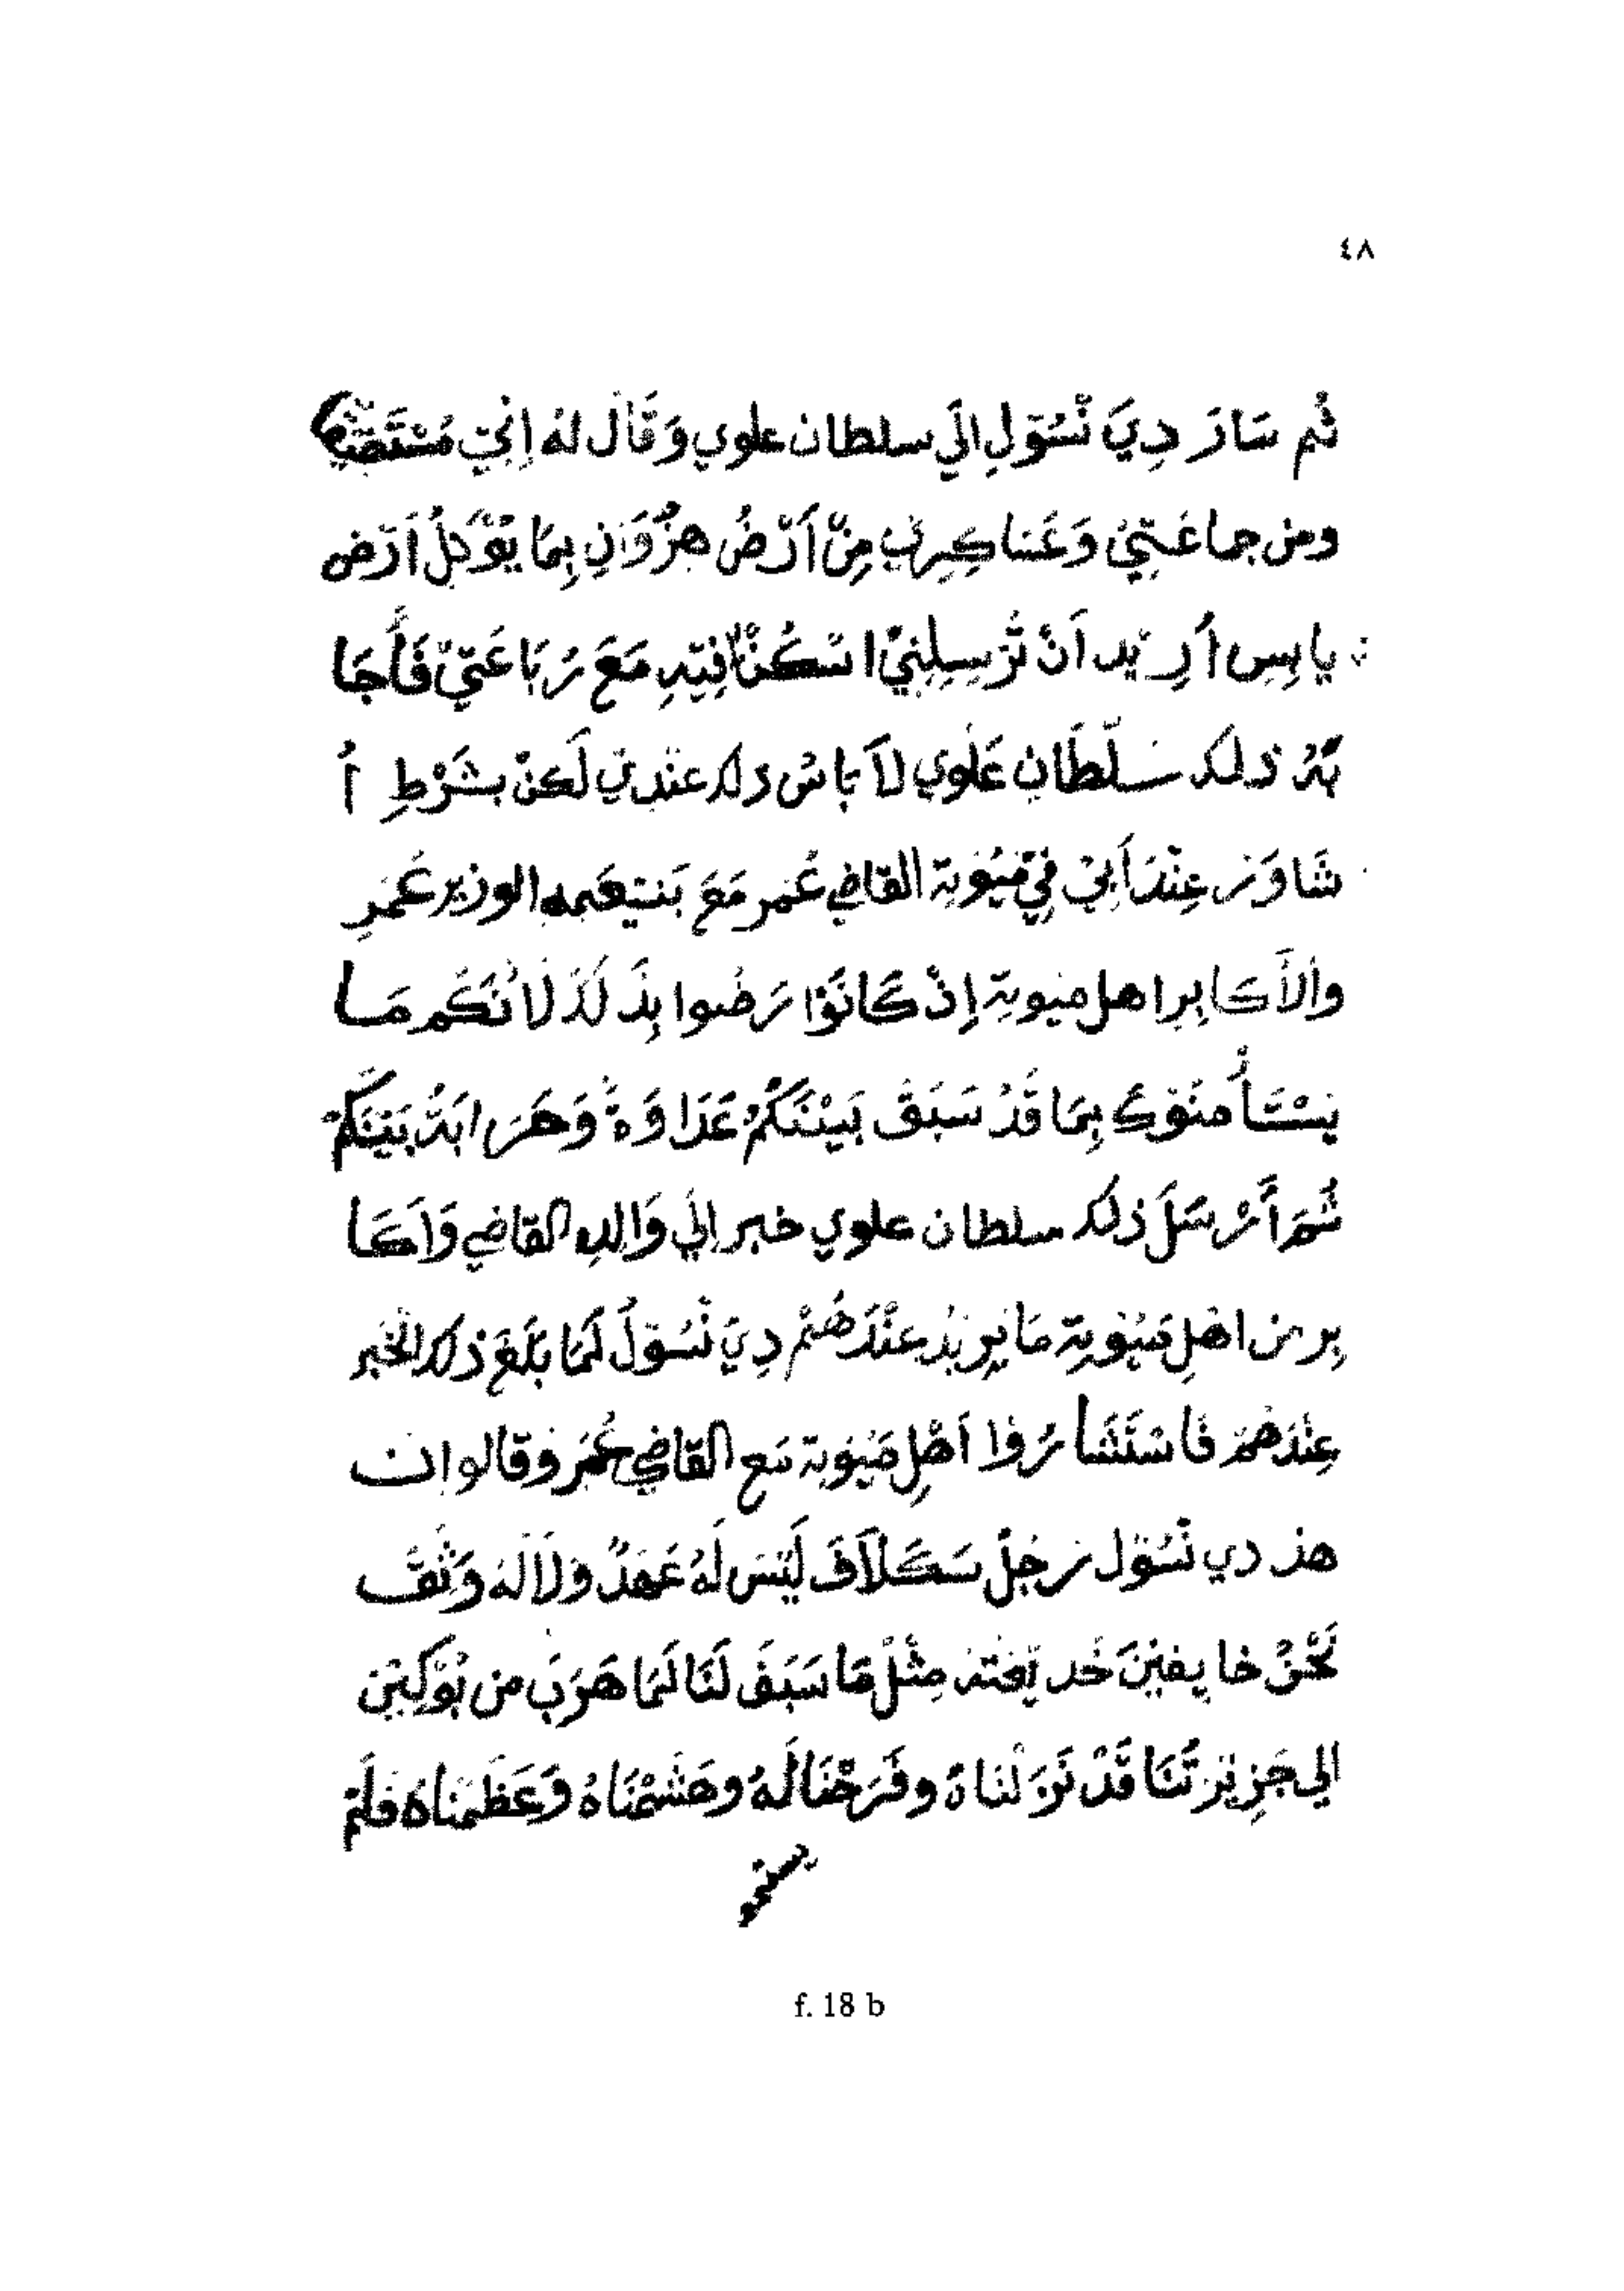 ٤٨
ثم سَارَ دِيَ نْسُوَلِ الَي سلطان علوي وَقَالَ لهُ اِنِيّ
ومن جماعَتِيْ وَعَساكِرِي مِنْ اَرْضُ هِزُّوَانِ بِمَا يُوَّكِلُ اَرَض
يابِس اُرِيَد اَنْ تُرْسِلِنِيْ اسْكُنْ فِيَهِ مَعَ رَبَاعَتِيْ فَأَجَا
بَهُ ذلك سَلْطَانِ عَلَوِي لآبَاسْ ذلك عِنْدِيَ لَكنْ بشَرْطِ اُ
شَاوَرَ عِنْدَ اَبِيْ فِيْ مَيُوْتِة القاضِي عُمَر مَعَ بَنيِعَمِهِ الوزير عُمَرِ
والاَكَابِرِ اهل ميوتة اِنْ كَانَوْا رَضُوا بِذَلَكَ لَاَنْكُم مَا
يَسْتَأْمنَوْكَ بِمَا قَدْ سَبَقَ بَيْنَكُمْ عَدَاوَةُ وَحَرَابَةُ بَيْنَكُمْ
ثُمَ اَرْسَلَ ذلك سلطان علوي خبر اِلَي وَالِدِهِ القاضي وَاَكَا
بِرِ من اهْلِ مَيُوْتِة مَا يُرِيْدُ عِنْدَهُمْ دِيَ نْسُوَلَ لَمَا بَلَغَ ذلك الخَبر
عِنْدَهُمْ فَاسْتَشَارُوا اَهْلِ مَيُوْتة مَع القَاضِي عُمَرْ وقالوا ان
هذ دي نْسُوَل رَجُلْ سَكَلَاَفَ لَيْسَ لَهُ عَهَدْ وَلَالَهُ وَثَقْ
نَحْنُ خايفيْنَ خَديَعَته مِثْلَ مَا سَبَقَ لَنَا لَمَا هَرَبَ من بُوْكِيْن
الي جَزِيْرَتُنَا قَدْ نَزَلْنَاهُ وفَرَحْنَا لَهُ وحَشَمْنَاهُ وَعَظَمْنَاهُ فلَمْ
f. 18 b